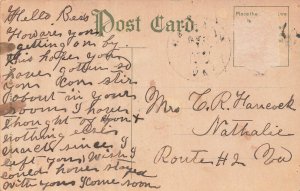 Hello Bess
Post Card.
How are you
getting on by
this hopes you
have gotten so
you can stir
about in your
room I have
thought of you
nothing else
much since I
left you Wish I
could have stayed
with you Come soon
Mrs C. R. Hancock
Nathalie
Route #2 Va